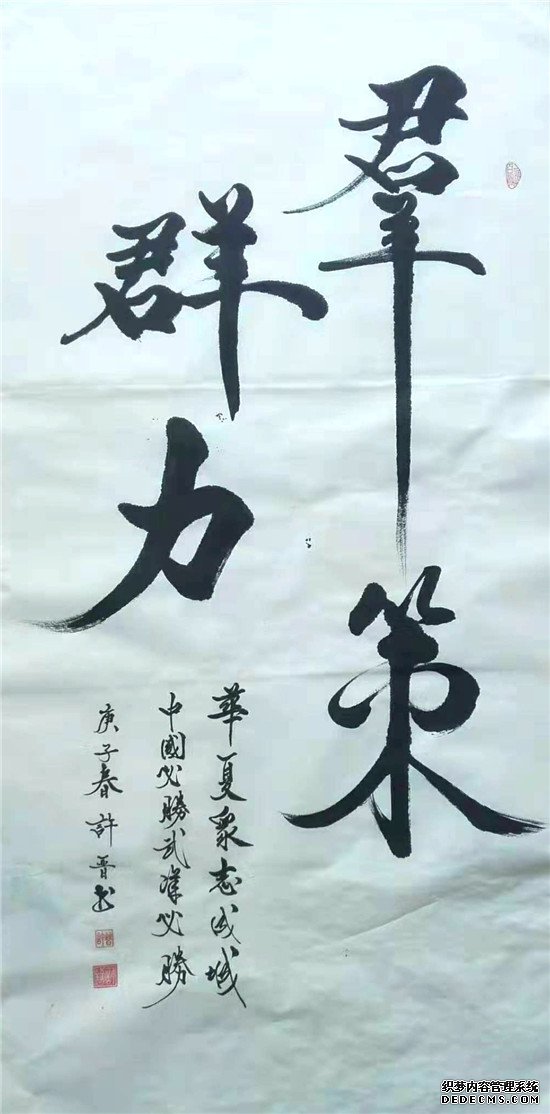 羣策
群力
華夏衆志成城
中國必勝武漢必勝
庚子春許晋书
织梦内容管理系统
DEDECMS.COM